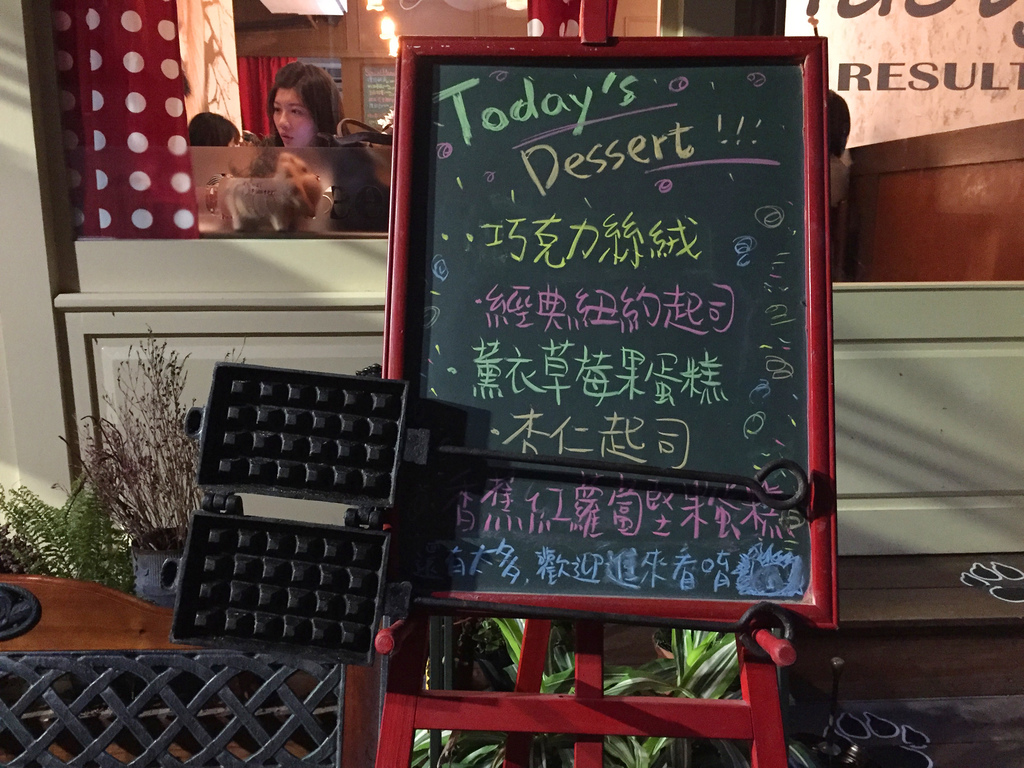 RESULT
Today's
Dessert !!!
·巧克力絲絨
·經典紐約起司
·薰衣草莓果蛋糕
·杏仁起司
香蕉紅蘿蔔堅果蛋糕
還有太多,歡迎進來看唷